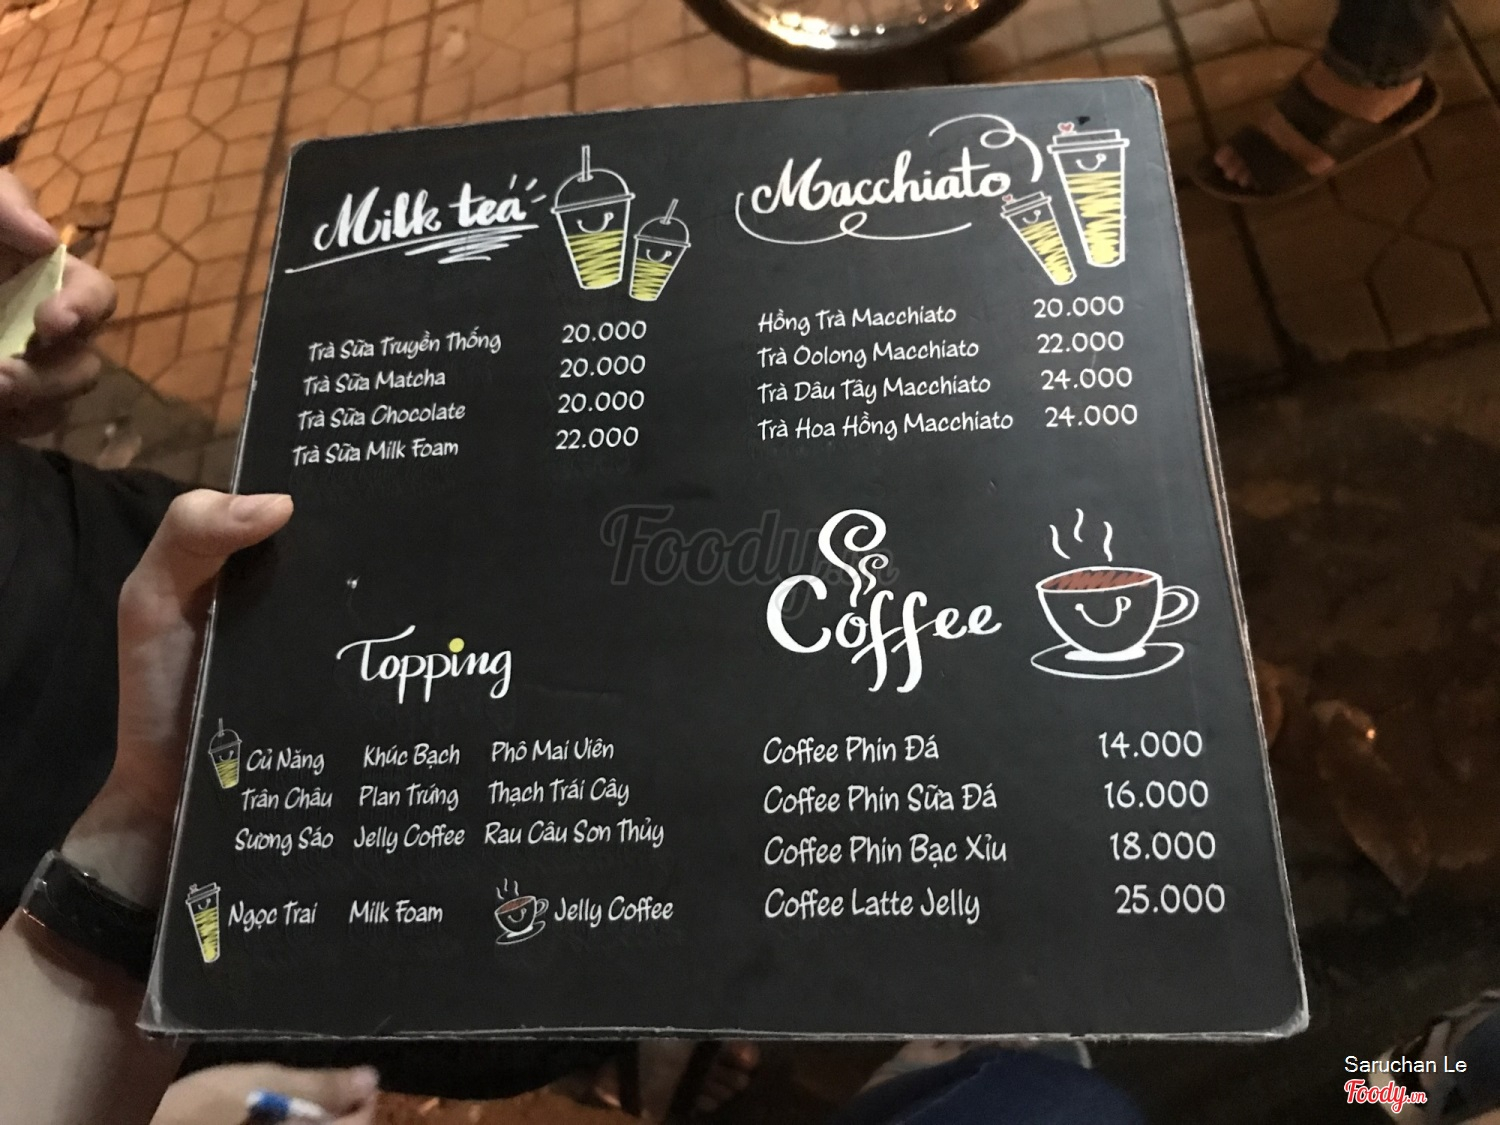 Milk tea
Trà Sữa Truyền Thống 20.000
Trà Sữa Matcha 20.000
Trà Sữa Chocolate 20.000
Trà Sữa Milk Foam 22.000
Macchiato
Hồng Trà Macchiato 20.000
Trà Oolong Macchiato 22.000
Trà Dâu Tây Macchiato 24.000
Trà Hoa Hồng Macchiato 24.000
Foody.vn
Topping
Củ Năng Khúc Bạch Phô Mai Viên
Trân Châu Plan Trứng Thạch Trái Cây
Sương Sáo Jelly Coffee Rau Câu Sơn Thủy
Ngọc Trai Milk Foam Jelly Coffee
Coffee
Coffee Phin Đá 14.000
Coffee Phin Sữa Đá 16.000
Coffee Phin Bạc Xỉu 18.000
Coffee Latte Jelly 25.000
Saruchan Le
Foody.vn